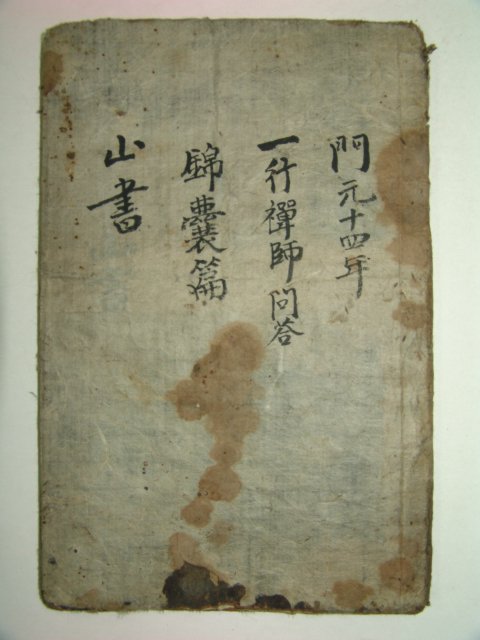 開元十四年
一行禪師問答
錦囊篇
山書